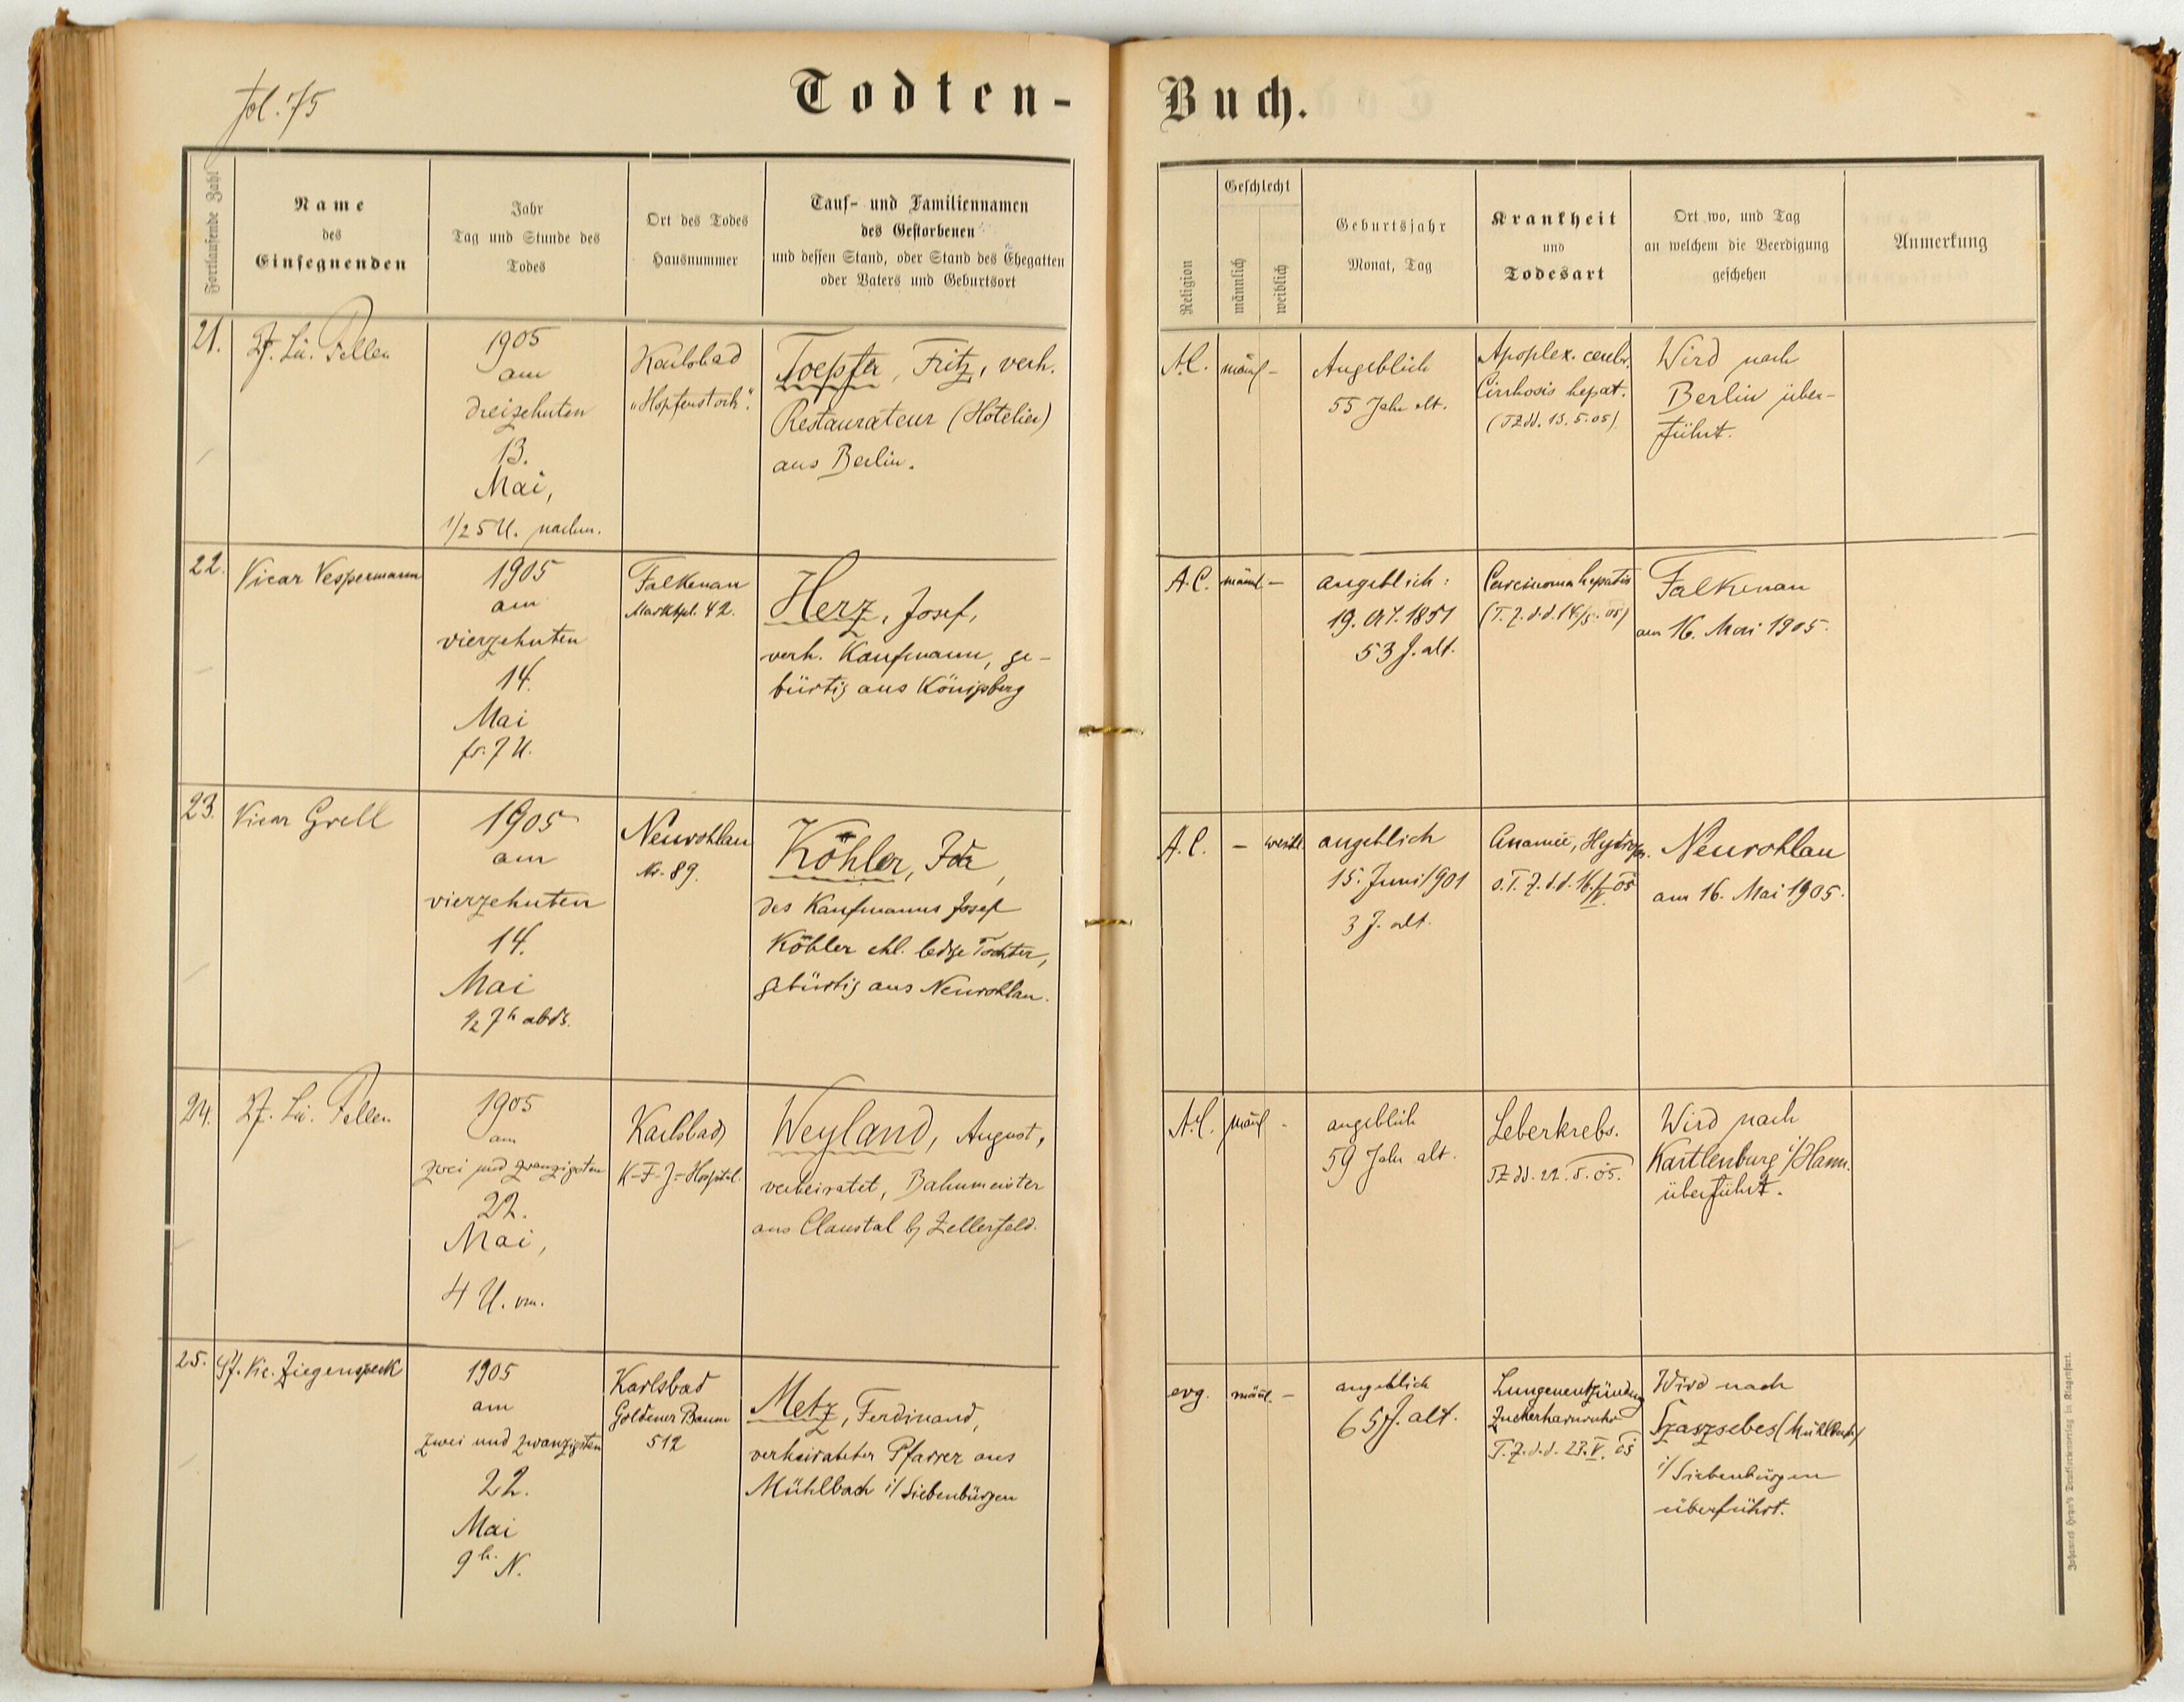 fol. 75
Todten-Buch.
Fortlaufende Zahl
Name
des
Einsegnenden
Jahr
Tag und Stunde des
Todes
Ort des Todes
Hausnummer
Tauf- und Familiennamen
des Gestorbenen
und dessen Stand, oder Stand des Ehegatten
oder Vaters und Geburtsort
Religion
Geschlecht
männlich
weiblich
Geburtsjahr
Monat, Tag
Krankheit
und
Todesart
Ort wo, und Tag
an welchem die Beerdigung
geschehen
Anmerkung
21.
1905
am
dreizehnten
13.
Mai,
1/2 5 U. nachm.
Karlsbad
"Hopfenstock".
Toepfer, Fritz, verh.
Restaurateur (Hotelier)
aus Berlin.
A.C.
männl -
Angeblich
55 Jahr alt.
Apoplex. cerebr.
Cirrhosis hepat.
(TZ dd. 13. 5. 05)
Wird nach
Berlin über-
führt.
22.
Vicar Vespermann
1905
am
vierzehnten
14.
Mai
fr. 7 U.
Falkenau
Marktpl. 42.
Herz, Josef,
verh. Kaufmann, ge-
bürtig aus Königsberg
A.C.
männl -
angeblich:
19. Okt. 1851
53 J. alt.
Carcinoma hepatis
(T. Z. d. d. 14/5. 05)
Falkenau
am 16. Mai 1905.
23.
Vicar Grell
1905
am
vierzehnten
14.
Mai
1/2 7h abds.
Neurohlau
Nr. 89.
Köhler, Ida,
des Kaufmanns Josef
Köhler ehl. ledge Tochter,
gebürtig aus Neurohlau.
A.C.
- weibl.
angeblich
15. Juni 1901
3 J. alt.
Anämie, Hydrops.
s. T. Z. d. d. 16. V. 05
Neurohlau
am 16. Mai 1905.
24.
1905
am
zwei und zwanzigsten
22.
Mai,
4 U. vm.
Karlsbad
K-F-J-Hospital.
Weyland, August,
verheiratet, Bahnmeister
aus Claustal b/ Zellerfeld.
A.C.
männl -
angeblich
59 Jahr alt.
Leberkrebs.
TZ dd. 22. 5. 05.
Wird nach
Kattlenburg i/Hann.
überführt.
25.
Pf. Vic. Ziegenspeck
1905
am
zwei und zwanzigsten
22.
Mai
9h. N.
Karlsbad
Goldener Baum
512
Metz, Ferdinand,
verheirateter Pfarrer aus
Mühlbach i/ Siebenbürgen
evg.
männl. -
angeblich
65 J. alt.
Lungenentzündung
Zuckerharnruhr
T. Z. d. d. 23. V. 05
Wird nach
Szaszsebes (Mühlbach)
i/ Siebenbürgen
überführt.
Johannes Heyn's Drucksortenverlag in Klagenfurt.